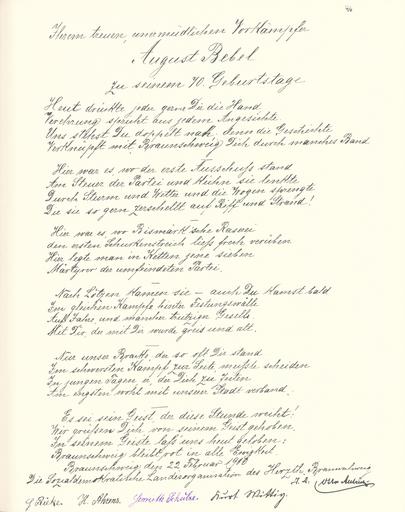 Ihrem treuen, unermüdlichen Vorkämpfer
August Bebel
zu seinem 70. Geburtstage
Heut drückte jeder gern Dir die Hand
Verehrung spricht aus jedem Angesichte
Uns stehst Du doppelt nah, denn die Geschichte
Verknüpft mit Braunschweig Dich durch manches Band
Hier war es, wo der erste Ausschuss stand
Am Steuer der Partei und kühn sie lenkte
Durch Sturm und Wetter und die Wogen sprengte
Die sie so gern zerschellt auf Riff und Strand!
Hier war es, wo Bismark'sche
den ersten Schurkenstreich liess frech verüben
Hier legte man in Ketten jene sieben
Märtyrer der umfeindeten Partei.
Nach Lötzen kamen sie – auch Du kamst bald
Im gleichen Kampfe hinter Festungswälle
Auf Jahre, und mancher trutzige Geselle
Mit Dir, der mit Dir wurde greis und alt.
Nur unser Bracke, der so oft Dir stand
Im schwersten Kampf zur Seite, musste scheiden
In jungen Tagen u. der Dich zu Zeiten
Am engsten wohl mit unsrer Stadt verband.
Es sei sein Geist der diese Stunde weiht!
Wir grüßen Dich von seinem Geist gehoben
In seinem Geiste lass uns heut geloben:
Braunschweig bleibt rot in alle Ewigkeit
Braunschweig den 22 Februar 1910
Die Sozialdemokratische Landesorganisation des Herzth. Braunschweig
G Rieke. H. Ahrens. Schulze. Wittig. I. A. Otto